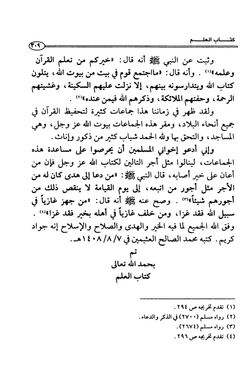 كتـــاب العلـــم
٣٠٩
وثبت عن النبي ﷺ أنه قال: «خيركم من تعلم القرآن
وعلمه»(١). وأنه قال: «مااجتمع قوم في بيت من بيوت الله، يتلون
كتاب الله ويتدارسونه بينهم، إلا نزلت عليهم السكينة، وغشيتهم
الرحمة، وحفتهم الملائكة، وذكرهم الله فيمن عنده»(٢).
ولقد ظهر في زماننا هذا جماعات كثيرة لتحفيظ القرآن في
جميع أنحاء البلاد، ومقر هذه الجماعات بيوت الله عز وجل، وهي
المساجد، والتحق بها ولله الحمد شباب كثير من ذكور وإناث.
وإني أدعو إخواني المسلمين أن يحرصوا على مساعدة هذه
الجماعات، لينالوا مثل أجر التالين لكتاب الله عز وجل فإن من
أعان على خير أصابه، قال النبي ﷺ: «من دعا إلى هدى كان له من
الأجر مثل أجور من اتبعه، إلى يوم القيامة لا ينقص ذلك من
أجورهم شيئاً»(٣). وصح عنه ﷺ أنه قال: «من جهز غازياً في
سبيل الله فقد غزا، ومن خلف غازياً في أهله بخير فقد غزا»(٤).
وفق الله الجميع لما فيه الخير والهدى والصلاح والإصلاح إنه جواد
كريم. كتبه محمد الصالح العثيمين في ١٤٠٨/٨/٧هـ.
تم
بحمد الله تعالى
كتاب العلم
(١) تقدم تخريجه ص ٢٩٤.
(٢) رواه مسلم (٢٧٠٠) في الذكر والدعاء.
(٣) رواه مسلم (٢٦٧٤).
(٤) تقدم تخريجه ص ٢٩٦.